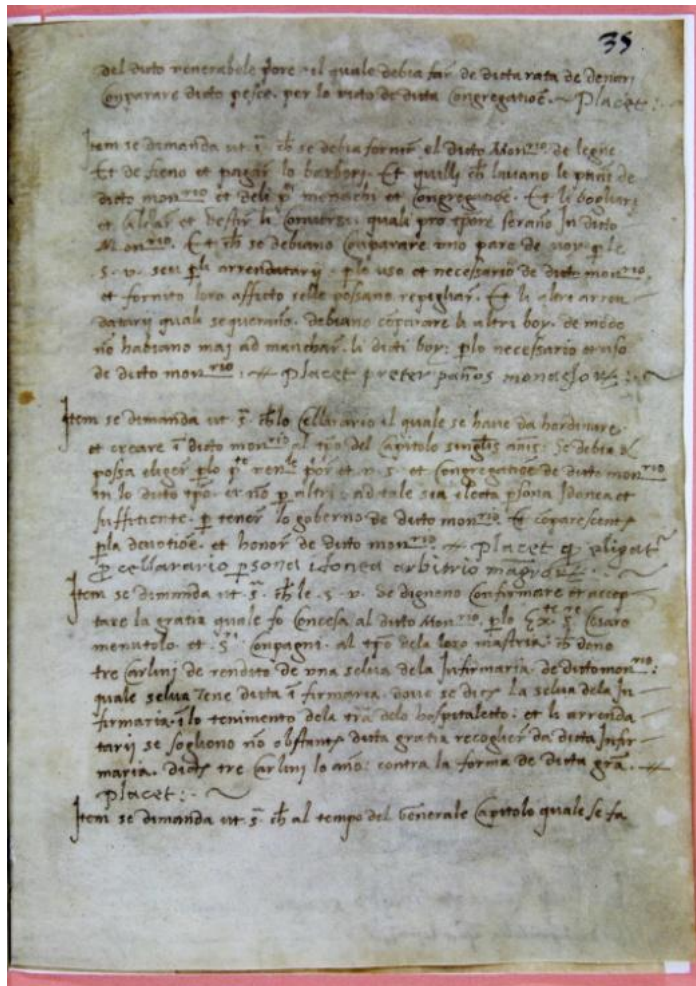 35
del dicto venerabele p̄ore. il quale debia far de dicta rata de denari
Comparare dicto pesce. per lo victo de dicta Congregatioē. Placet:
Item se dimanda ut s̄. ch̄ se debia fornir el dicto Mon.rio de legne
Et de fieno et pagar lo barbery. Et quilli ch̄ lavano le panni de
dicto monrio et deli pti monachi et Congregatioē. Et li
et et vestir li Conversi. quali pro tpore serano In dicto
Monrio. Et ch̄ se debiano Comparare uno paro de novi. p le
s. v. seu p li arrendatarij. p lo uso et necessario de dicto monrio.
et fornito loro afficto selle possano repigliar. Et li altri arren
datarij quali sequerano. debiano cōparare li altri boy. de modo
nō habiano maj ad manchar. li dicti boy: p lo necessario et uso
de dicto monrio: Placet preter paños
Item se dimanda ut s̄. ch̄ lo Cellarario il quale se have da hordinare.
et creare ī dicto monrio al tp̄o del Capitolo singlis annis: Se debia et
possa eliger p lo pto venle p̄or et v. s. et Congregatioē de dicto monrio
in lo dicto tp̄o. et nō p altri: ad tale sia electa p̄sona Idonea et
sufficiente. p tener lo goberno de dicto monrio. Et
p la devotioē. et honor de dicto monrio. Placet q eligat
p cellarario p̄sona idonea arbitrio
Item se dimanda ut. s̄. ch̄ le. s. v. se digneno Confirmare et accep
tare la gratia quale fo Concesa al dicto Monrio. p lo Exte sre Cesaro
menutolo. et sri Conpagni. al tp̄o dela loro mastria: ch̄ dono
tre Carlini de rendito de una selva dela Infirmaria. de dicto monrio:
quale selva tene dicta īfirmaria. dove se dice La selva dela In
firmaria. ī lo tenimento dela tr̄a delo hospitaletto: et li arrenda
tarij se sogliono nō obstante dicta gratia recoglier da dicta Infir
maria. dicti tre Carlini lo año: contra la forma de dicta gr̄a.
placet:
Item se dimanda ut s̄. ch̄ al tempo del Generale Capitolo quale se fa